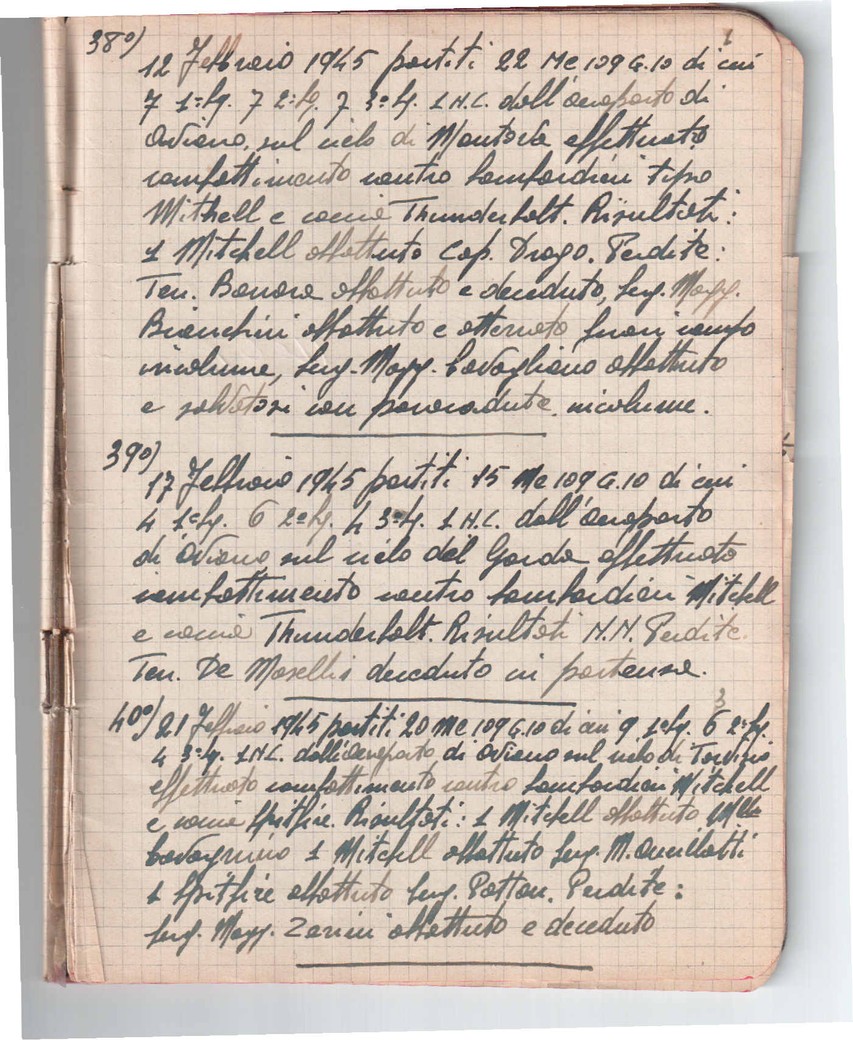 38º)
12 Febbraio 1945 partiti 22 Me 109 G.10 di cui
7 1ªSq. 7 2ªSq. 7 3ªSq. 1 N.C. dall'aeroporto di
Aviano, sul cielo di Mantova effettuato
combattimento contro bombardieri tipo
Mithell e caccia Thunderbolt. Risultati:
1 Mitchell abbattuto Cap. Drago. Perdite:
Ten. Bonara abbattuto e deceduto, Serg. Magg.
Bianchini abbattuto e atterrato fuori campo
incolume, Serg. Magg. Cavagliano abbattuto
e salvatosi con paracadute incolume.
39º)
17 Febbraio 1945 partiti 15 Me 109 G.10 di cui
4 1ªSq. 6 2ªSq. 4 3ªSq. 1 N.C. dall'aeroporto
di Aviano sul cielo del Garda effettuato
combattimento contro bombardieri Mitchell
e caccia Thunderbolt. Risultati N.N. Perdite.
Ten. De Masellis deceduto in partenza.
3
40º) 21 Febbraio 1945 partiti 20 Me 109 G.10 di cui 9 1ªSq. 6 2ªSq.
4 3ªSq. 1 N.C. dall'aeroporto di Aviano sul cielo di Tarvisio
effettuato combattimento contro bombardieri Mitchell
e caccia Spitfire. Risultati: 1 Mitchell abbattuto M.llo
Cavagnino 1 Mitchell abbattuto Serg. M. Ancillotti
1 Spitfire abbattuto Serg. Patton. Perdite:
Serg. Magg. Zarini abbattuto e deceduto